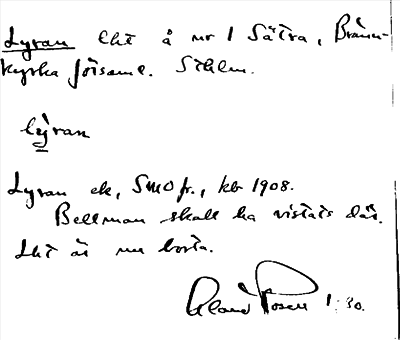 Lyran Lht å nr 1 Sätra, Bränn-
kyrka förs:aml. Sthlm.
lỳran
Lyran ek, SMO fr., kbr 1908.
Bellman skall ha vistats där.
Lht är nu borta.
1:30.